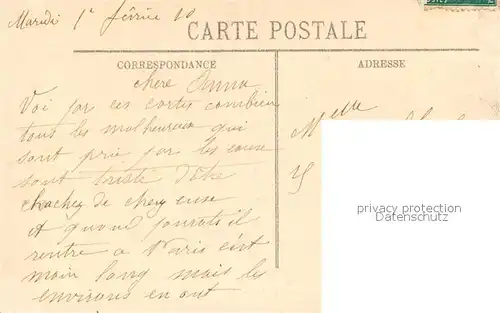 Mardi 1r févrie 10
CARTE POSTALE
CORRESPONDANCE
ADRESSE
chere
Voi par ces cartes combien
tous les malheureux qui
sont prie par les eaux
sont triste d'être
chachez de chez euse
et quand pourats il
rentre a Paris c'est
moin lang mais les
environs en ont
Melle
privacy protection
Datenschutz